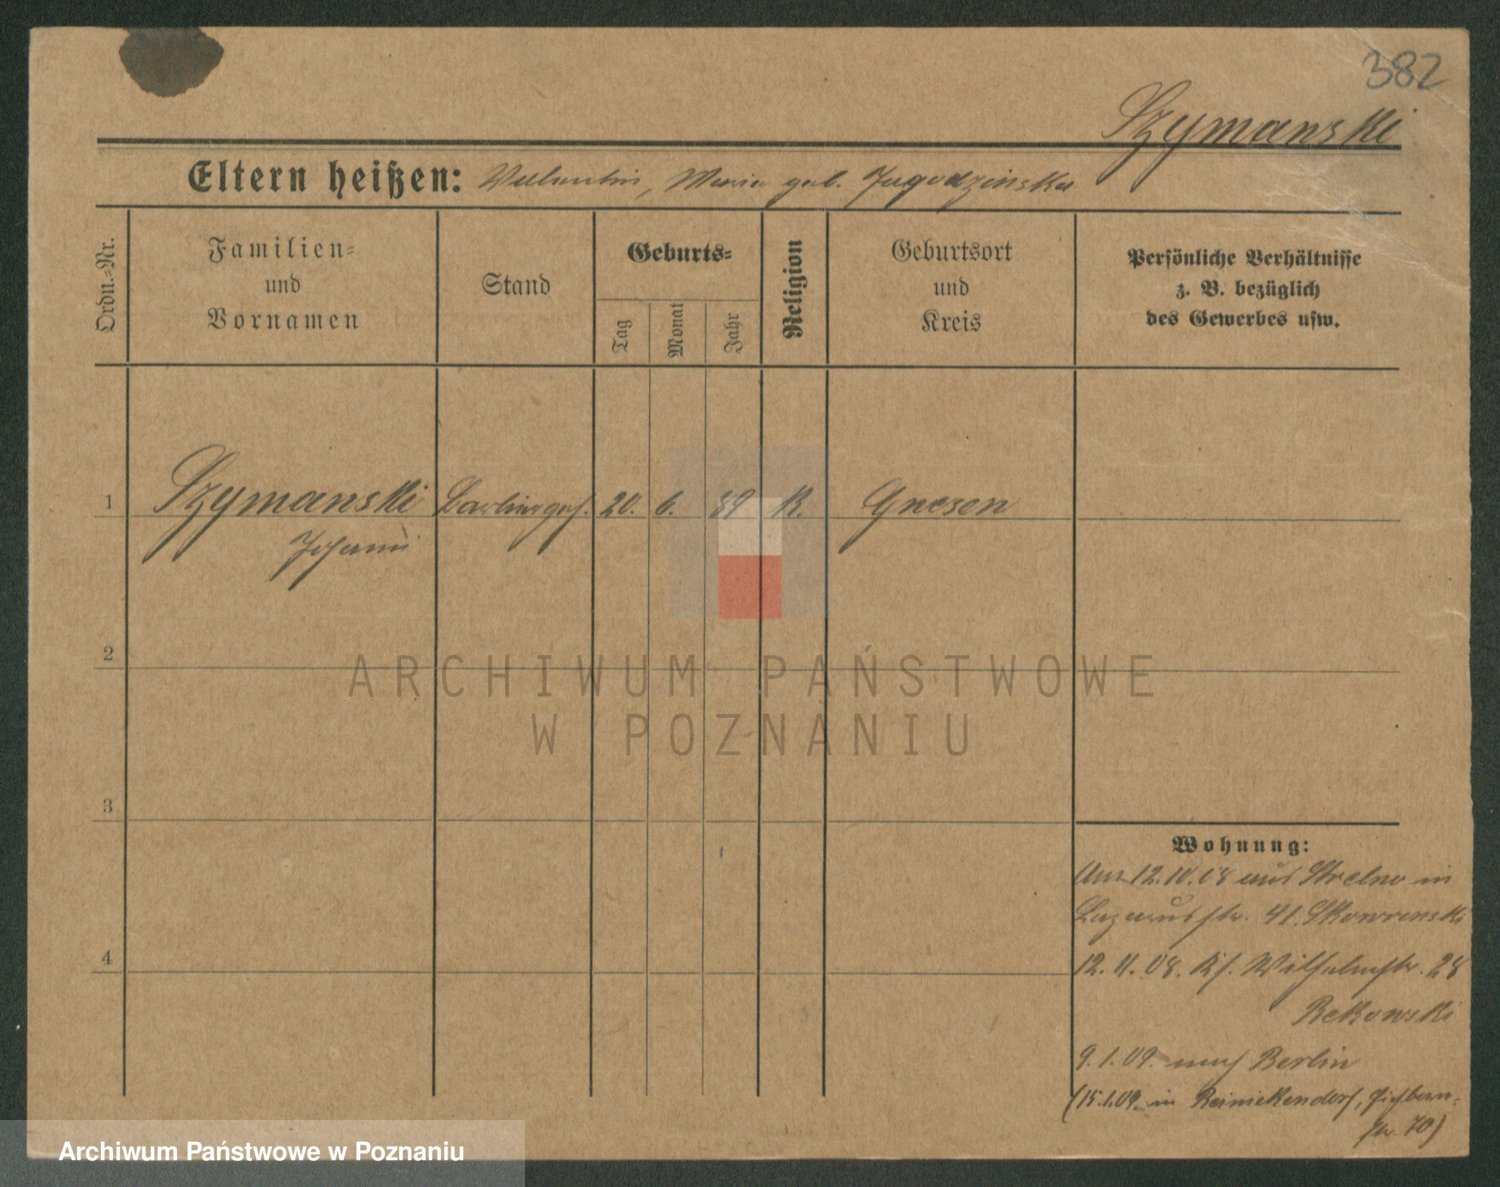 382
Szymanski
Eltern heißen: Valentin, Maria geb. Jagodzinska
Ordn.=Nr.
Familien=
und
Vornamen
Stand
Geburts=
Tag
Monat
Jahr
Religion
Geburtsort
und
Kreis
Persönliche Verhältnisse
z. B. bezüglich
des Gewerbes usw.
1 Szymanski Barbiergeh. 20. 6. 89 K. Gnesen
Johann
2
3
4
Wohnung:
Am 12.10.08 aus Strelno in
Lazarusstr. 41. Skowronski
12.11.08. Wilhelmstr. 28
Rekowski
9.1.09. nach Berlin
(15.1.09. in Reinickendorf, Eichborn-
str 70)
ARCHIWUM PAŃSTWOWE
W POZNANIU
Archiwum Państwowe w Poznaniu